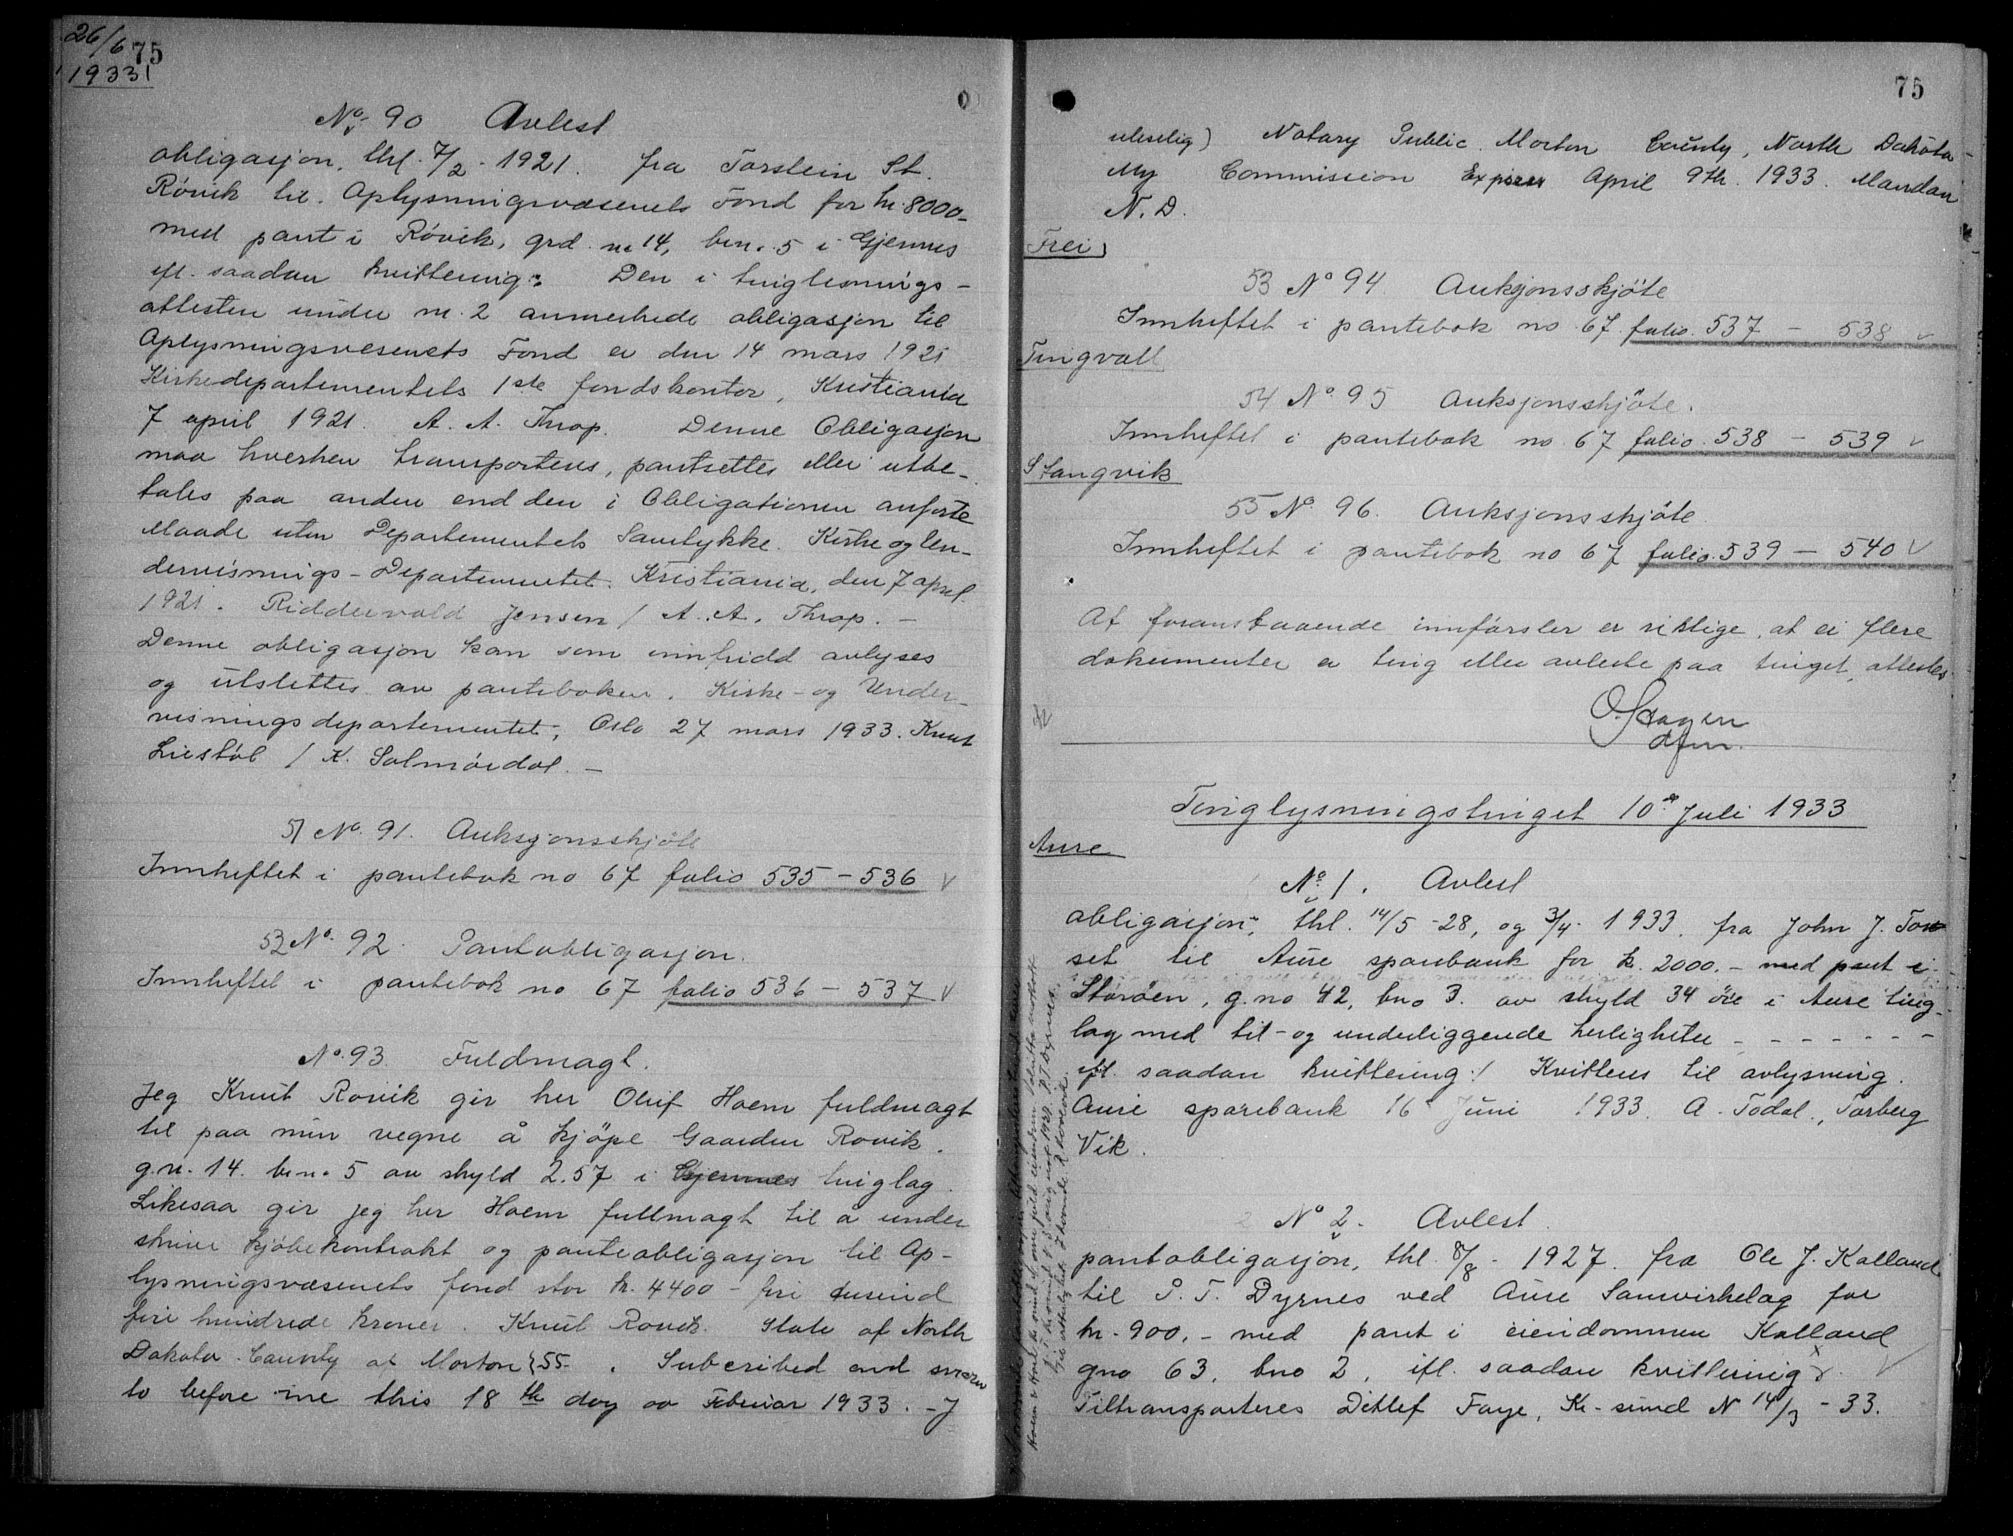 26/6 75
1933
No 90 Avlest
obligasjon, thl. 7/2 - 1921. fra Torstein St.
Røvik til Oplysningsvæsenets Fond for kr. 8000-
med pant i Røvik, grd. nr 14, bnr. 5 i Gjemnes
ifl. saadan kvittering: Den i tinglesnings-
attesten under nr. 2 anmerkede obligasjon til
Oplysningsvesenets Fond er den 14 mars 1921
Kirkedepartementets 1ste fondskontor, Kristiania
7 april 1921. A. A. Throp. Denne Obligasjon
maa hverken transporteres, pantsettes eller utbe-
tales paa anden end den i Obligationen anførte
Maade uten Departementets Samtykke. Kirke og Un-
dervisnings-Departementet. Kristiania, den 7 april
1921. Riddervold Jensen / A. A. Throp. -
Denne obligasjon kan som innfridd avlyses
og utslettes av panteboken. Kirke- og Under-
visningsdepartementet, Oslo 27 mars 1933. Knut
Liestøl / K. Salmørdal. -
51 No. 91. Auksjonsskjöte
Innheftet i pantebok no 67 folio 535 - 536 v
52 No. 92. Pantobligasjon.
Innheftet i pantebok no 67 folio 536 - 537 v
No. 93 Fuldmagt.
Jeg Knut Rovik gir her Oluf Hoem fuldmagt
til paa min vegne å kjöpe Gaarden Rovik.
g.n. 14. bn. 5 av skyld 2.57 i Gjemnes tinglag.
Likesaa gir jeg her Hoem fullmagt til å under
skrive kjöbekontrakt og panteobligasjon til Op-
lysningsvæsenets fond stor kr. 4400 - fire tusind
fire hundrede kroner. Knut Rovik. State of North
Dakota County of Morton } SS. Subcribed and sworn
to before me this 18th day oo Februar 1933. - J
75
uleselig) Notary Public. Morton County, North Dakota-
My Commission Expires April 9th. 1933. Mandan
N. D.
Frei
53 No 94 Auksjonsskjöte
Innheftet i pantebok no 67 folio 537 - 538 v
Tingvoll
54 No. 95 Auksjonsskjöte.
Innheftet i pantebok no 67 folio 538 - 539 v
Stangvik
55 No 96. Auksjonsskjöte
Innheftet i pantebok no 67 folio 539 - 540 v
At foranstaaende innförsler er riktige, at ei flere
dokumenter er ting eller avleste paa tinget, attesteres
Tinglysningstinget 10de Juli 1933
Aure
No. 1. Avlest
obligasjon, thl. 14/5 -28, og 3/4- 1933. fra John J. Tor
set til Aure sparebank for kr. 2000.- med pant i
Storöen, g.no 42, bno 3. av skyld 34 öre i Aure ting-
lag med til- og underliggende herligheter - - - - - -
ifl. saadan kvittering:/ Kvitteres til avlysning.
Aure sparebank 16 Juni 1933. A. Todal., Torberg
Vik.
2 No 2. Avlest.
pantobligasjon, thl. 8/8 - 1927. fra Ole J. Kalland
til P. T. Dyrnes ved Aure Samvirkelag for
kr. 900.- med pant i eiendommen Kalland
gno 63, bno 2, ifl. saadan kvittering v
Tiltransporteres Ditlef Faye, Kr.-sund N 14/3 - 33.